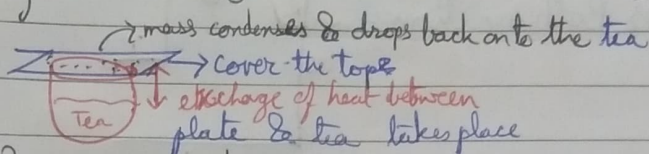 mass condenses & drops back onto the tea
→ cover the tops
exchage of heat between
Tea
plate & tea takes place